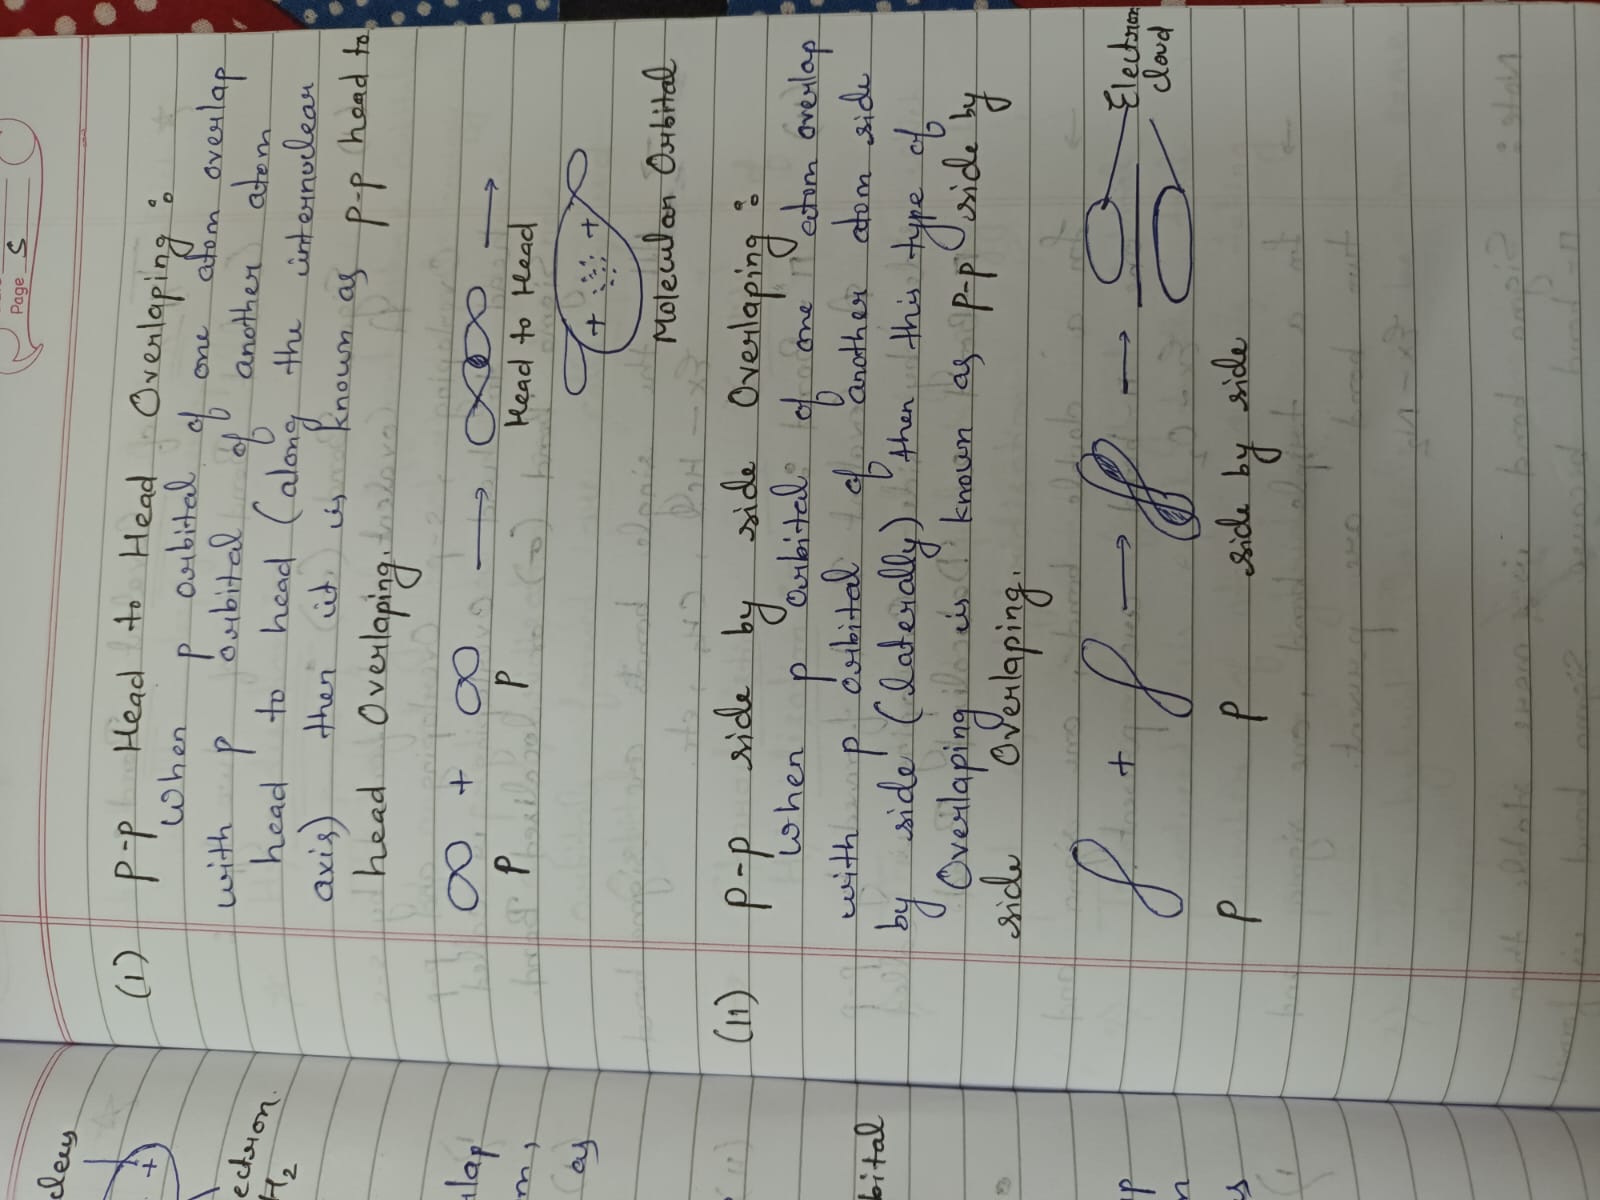 Page 5
cleus
+
ectron.
H2
lap
m,
as
bital
(I) p-p Head to Head Overlaping :
When p orbital of one atom overlap
with p orbital of another atom
head to head (along the internuclear
axis) then it is known as p-p head to
head Overlaping.
+
p p
Head to Head
+ +
Molecular Orbital
(II) p-p side by side Overlaping :
When p orbital of one atom overlap
with p orbital of another atom side
by side (laterally) then this type of
Overlaping is known as p-p side by
side Overlaping.
+
Electron
cloud
p p side by side